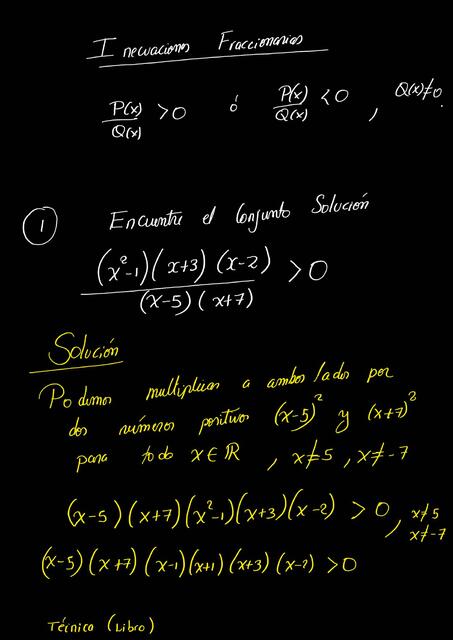 Inecuaciones Fraccionarias
P(x)/Q(x) > 0 ó P(x)/Q(x) < 0 , Q(x)≠0.
① Encuentre el Conjunto Solución
(x²-1)(x+3)(x-2)/(x-5)(x+7) > 0
Solución
Podemos multiplicar a ambos lados por
dos números positivos (x-5)² y (x+7)²
para todo x∈ℝ , x≠5 , x≠-7
(x-5)(x+7)(x²-1)(x+3)(x-2) > 0 , x≠5
x≠-7
(x-5)(x+7)(x-1)(x+1)(x+3)(x-2) > 0
Técnica (Libro)